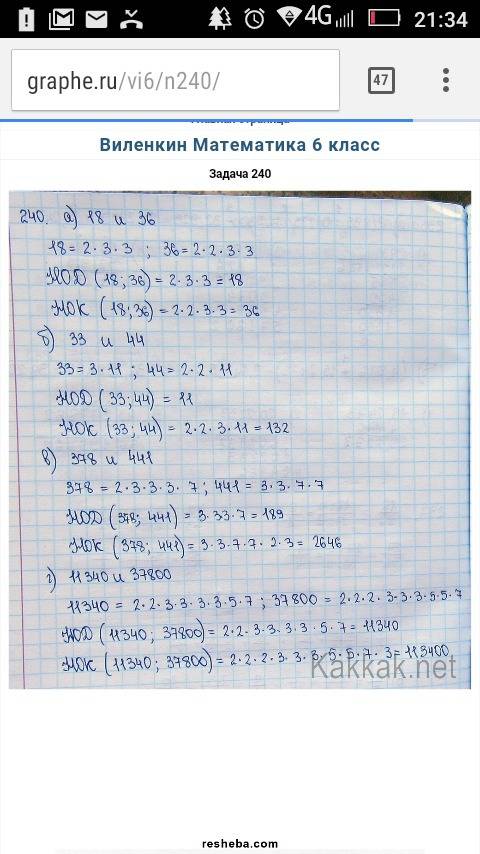 21:34
4G
graphe.ru/vi6/n240/
47
Главная страница
Виленкин Математика 6 класс
Задача 240
240. а) 18 и 36
18 = 2·3·3 ; 36 = 2·2·3·3
НОД (18; 36) = 2·3·3 = 18
НОК (18; 36) = 2·2·3·3 = 36
б) 33 и 44
33 = 3·11 ; 44 = 2·2·11
НОД (33; 44) = 11
НОК (33; 44) = 2·2·3·11 = 132
в) 378 и 441
378 = 2·3·3·3·7 ; 441 = 3·3·7·7
НОД (378; 441) = 3·33·7 = 189
НОК (378; 441) = 3·3·7·7·2·3 = 2646
г) 11340 и 37800
11340 = 2·2·3·3·3·3·5·7 ; 37800 = 2·2·2·3·3·3·5·5·7
НОД (11340; 37800) = 2·2·3·3·3·3·5·7 = 11340
НОК (11340; 37800) = 2·2·2·3·3·3·5·5·7·3 = 113400
Kakkak.net
resheba.com